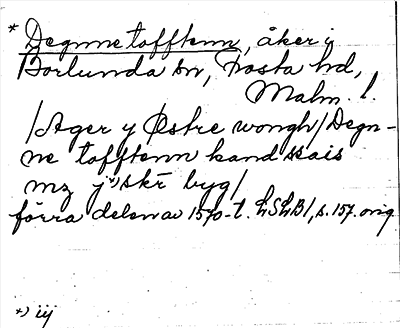 * Degnne tofftenn, åker i
Borlunda sn, Frosta hd,
Malm. l.
/Ager y Østre wongh/Degn-
ne tofftenn kand saais
mz j *) skr byg/
förra delen av 1570-t. LSLB1, s. 157. orig
*) iij